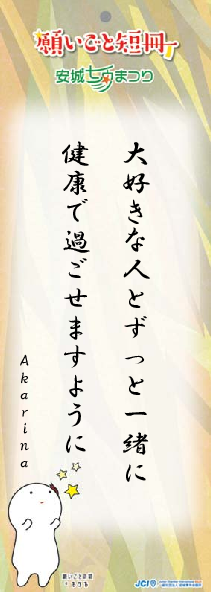 願いごと短冊
安城七夕まつり
大好きな人とずっと一緒に
健康で過ごせますように
Akarina
願いごと短冊
JCI